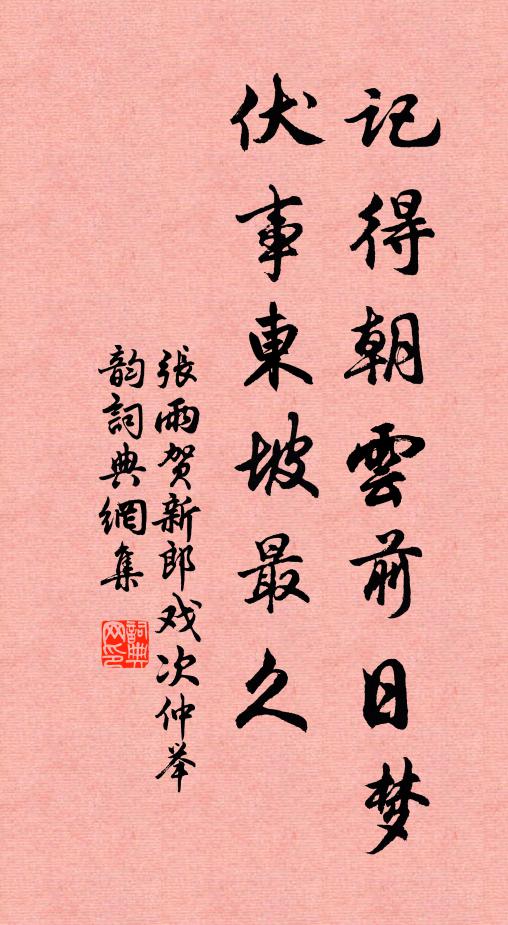 記得朝雲前日梦
伏事東坡最久
張雨贺新郎戏次仲举
韵詞典網集
詞典网印